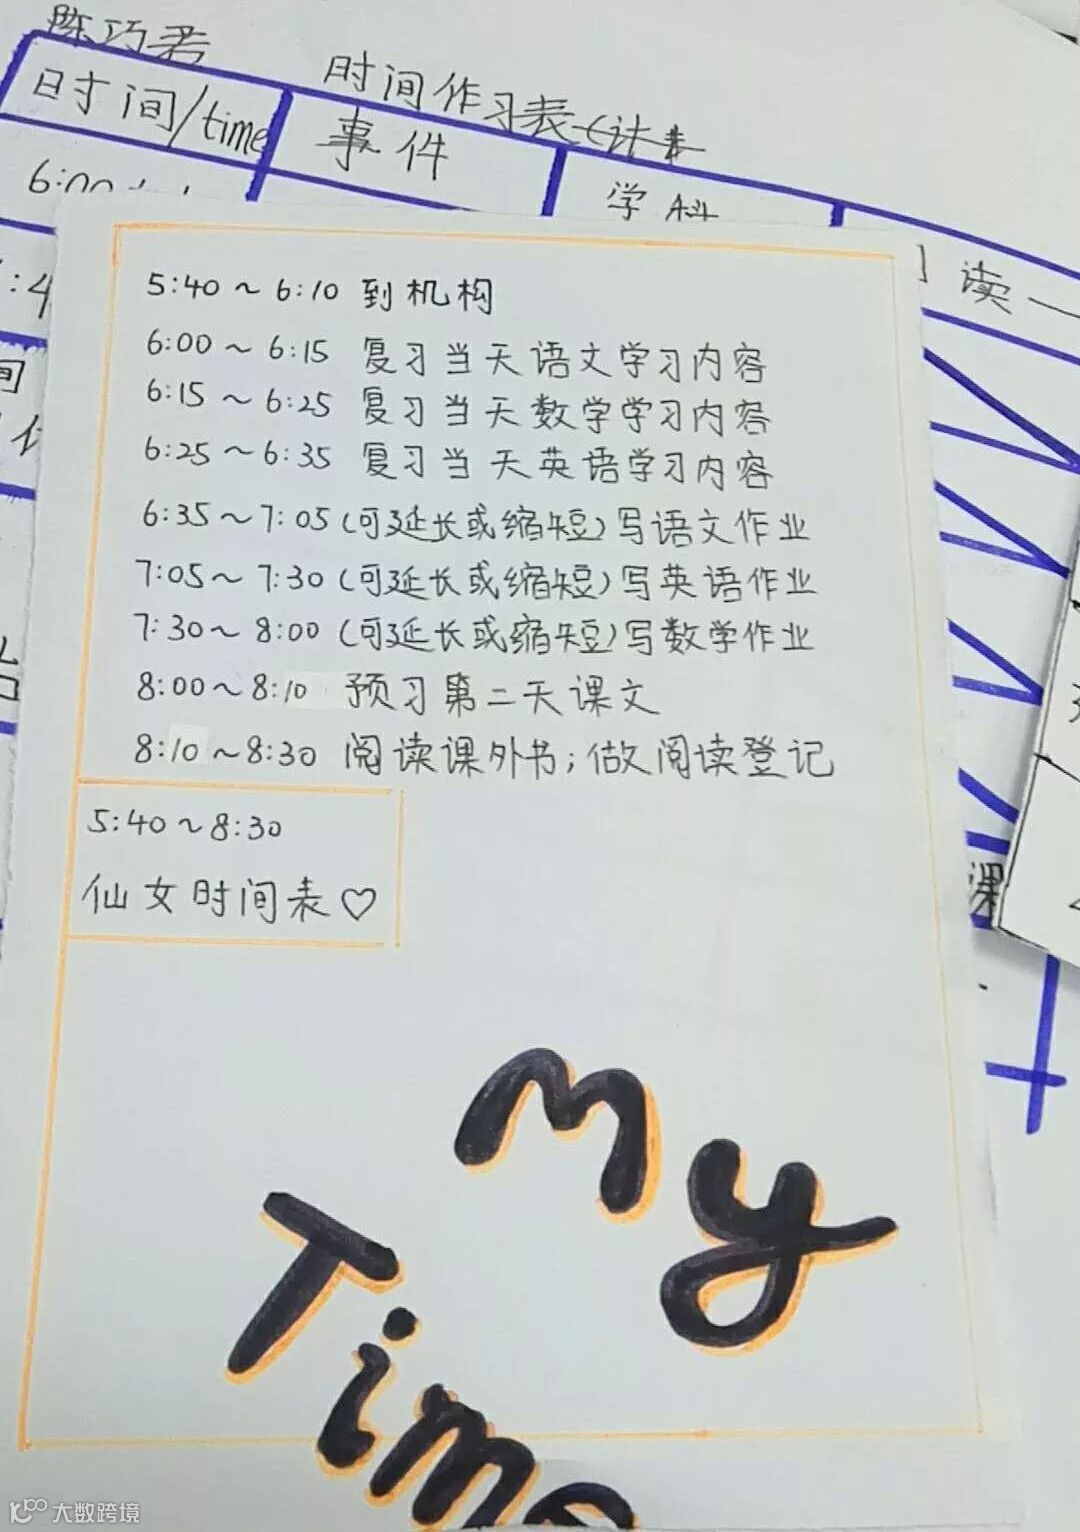 陈巧君
时间作习表(计
时间/time 事件 学科
6:00
读一
5:40~6:10 到机构
6:00~6:15 复习当天语文学习内容
6:15~6:25 复习当天数学学习内容
6:25~6:35 复习当天英语学习内容
6:35~7:05(可延长或缩短)写语文作业
7:05~7:30(可延长或缩短)写英语作业
7:30~8:00(可延长或缩短)写数学作业
8:00~8:10 预习第二天课文
8:10~8:30 阅读课外书;做阅读登记
5:40~8:30
仙女时间表♡
课
My
Time
大数跨境